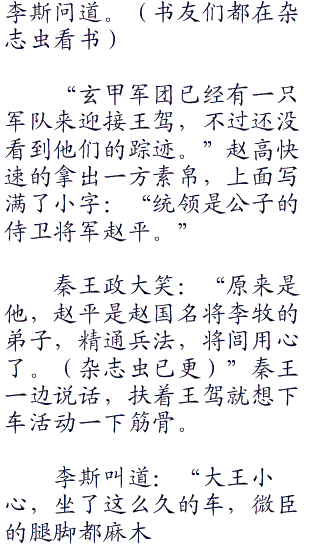 李斯问道。（书友们都在杂
志虫看书）
“玄甲军团已经有一只
军队来迎接王驾，不过还没
看到他们的踪迹。”赵高快
速的拿出一方素帛，上面写
满了小字：“统领是公子的
侍卫将军赵平。”
秦王政大笑：“原来是
他，赵平是赵国名将李牧的
弟子，精通兵法，将闾用心
了。（杂志虫已更）”秦王
一边说话，扶着王驾就想下
车活动一下筋骨。
李斯叫道：“大王小
心，坐了这么久的车，微臣
的腿脚都麻木